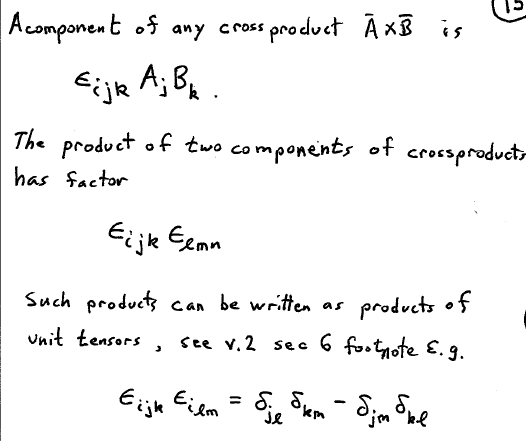 A component of any cross product A̅ × B̅ is
ϵijk Aj Bk .
The product of two components of crossproducts
has factor
ϵijk ϵlmn
Such products can be written as products of
unit tensors , see v.2 sec 6 footnote E.g.
ϵijk ϵilm = δjl δkm - δjm δkl